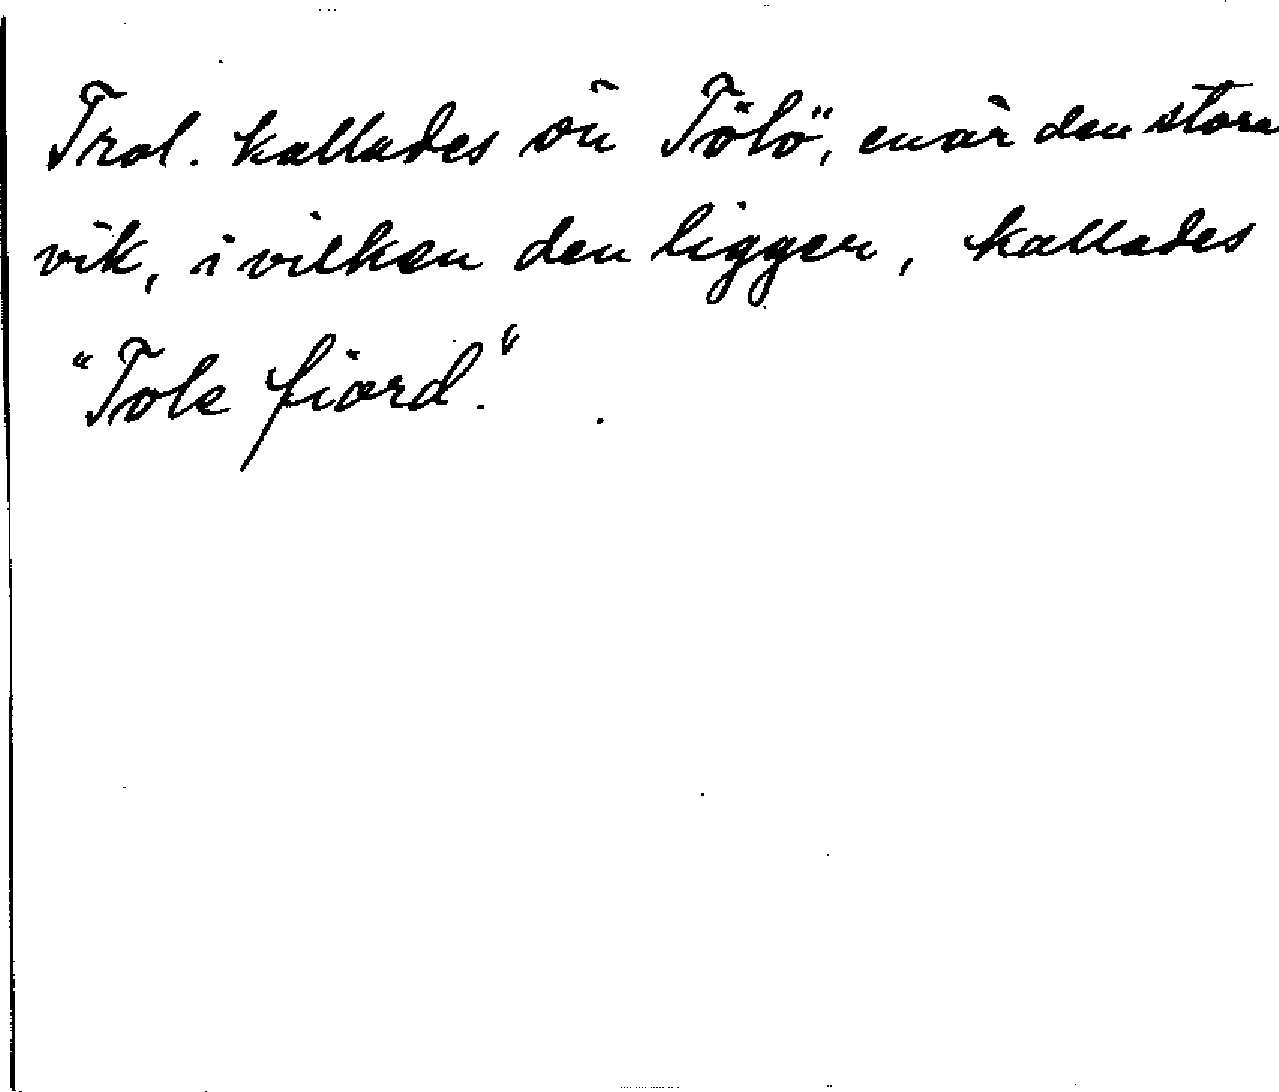 Trol. kallades ön Tölö", enär den stora
vik, i vilken den ligger, kallades
"Tole fiord."